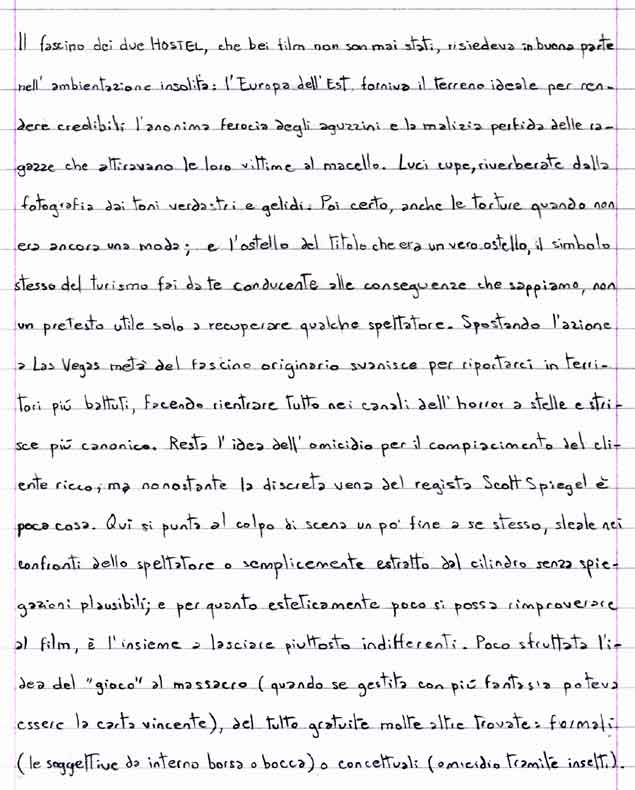 Il fascino dei due HOSTEL, che bei film non son mai stati, risiedeva in buona parte
nell'ambientazione insolita: l'Europa dell'Est forniva il terreno ideale per ren-
dere credibili l'anonima ferocia degli aguzzini e la malizia perfida delle ra-
gazze che attiravano le loro vittime al macello. Luci cupe, riverberate dalla
fotografia dai toni verdastri e gelidi. Poi certo, anche le torture quando non
era ancora una moda; e l'ostello del titolo che era un vero ostello, il simbolo
stesso del turismo fai da te conducente alle conseguenze che sappiamo, non
un pretesto utile solo a recuperare qualche spettatore. Spostando l'azione
a Las Vegas metà del fascino originario svanisce per riportarci in terri-
tori più battuti, facendo rientrare tutto nei canali dell'horror a stelle e stri-
sce più canonico. Resta l'idea dell'omicidio per il compiacimento del cli-
ente ricco, ma nonostante la discreta vena del regista Scott Spiegel è
poca cosa. Qui si punta al colpo di scena un po' fine a se stesso, sleale nei
confronti dello spettatore o semplicemente estratto dal cilindro senza spie-
gazioni plausibili; e per quanto esteticamente poco si possa rimproverare
al film, è l'insieme a lasciare piuttosto indifferenti. Poco sfruttata l'i-
dea del "gioco" al massacro (quando se gestita con più fantasia poteva
essere la carta vincente), del tutto gratuite molte altre trovate: formali
(le soggettive da interno borsa o bocca) o concettuali (omicidio tramite insetti).